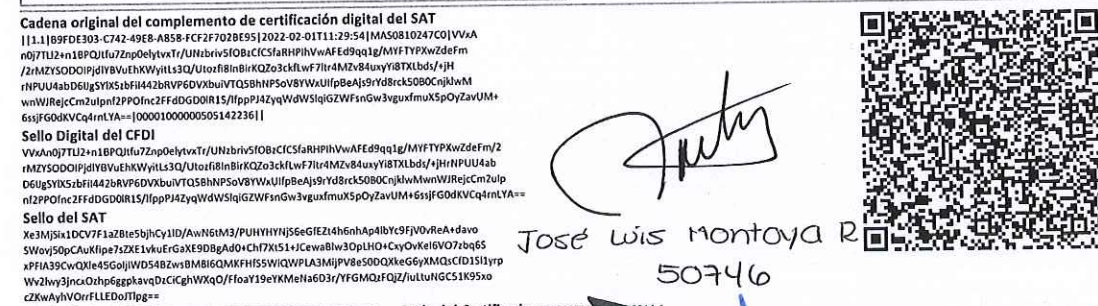 Cadena original del complemento de certificación digital del SAT
||1.1|B9FDE303-C742-49E8-A858-FCF2F702BE95|2022-02-01T11:29:54|MAS0810247C0|VVxA
n0j7TLI2+n1BPQJtfu7Znp0elytvxTr/UNzbriv5fOBzCfCSfaRHPIhVwAFEd9qq1g/MYFTYPXwZdeFm
/2rMZYSODOIPjdIYBVuEhKWyitLs3Q/Utozfi8InBirKQZo3ckfLwF7Itr4MZv84uxyYi8TXLbds/+jH
rNPUU4abD6UgSYlX5zbFiI442bRVP6DVXbuiVTQ5BhNPSoV8YWxUIfpBeAjs9rYd8rck50B0CnjklwM
wnWJRejcCm2uIpnf2PPOfnc2FFdDGD0IR1S/IfppPJ4ZyqWdWSlqiGZWFsnGw3vguxfmuX5pOyZavUM+
6ssjFG0dKVCq4rnLYA==|00001000000505142236||
Sello Digital del CFDI
VVxAn0j7TLI2+n1BPQJtfu7Znp0elytvxTr/UNzbriv5fOBzCfCSfaRHPIhVwAFEd9qq1g/MYFTYPXwZdeFm/2
rMZYSODOIPjdIYBVuEhKWyitLs3Q/Utozfi8InBirKQZo3ckfLwF7Itr4MZv84uxyYi8TXLbds/+jHrNPUU4ab
D6UgSYlX5zbFiI442bRVP6DVXbuiVTQ5BhNPSoV8YWxUIfpBeAjs9rYd8rck50B0CnjklwMwnWJRejcCm2uIp
nf2PPOfnc2FFdDGD0IR1S/IfppPJ4ZyqWdWSlqiGZWFsnGw3vguxfmuX5pOyZavUM+6ssjFG0dKVCq4rnLYA==
Sello del SAT
Xe3MjSix1DCV7F1aZBte5bjhCy1ID/AwN6tM3/PUHYHYNjS6eGfEZt4h6nhAp4IbYc9FjV0vReA+davo
SWovj50pCAuKfipe7sZXE1vkuErGaXE9DBgAd0+Chf7Xt51+JCewaBlw3OpLHO+CxyOvKeI6VO7zbq6S
xPFIA39CwQXIe45GoljIWD54BZwsBMBI6QMKFHfS5WIQWPLA3MijPV8eS0DQXkeG6yXMQsCfD1SI1yrp
Wv2Iwy3jncxOzhp6ggpkavqDzCiCghWXqO/FfoaY19eYKMeNa6D3r/YFGMQzFQjZ/iuLtuNGC51K95xo
cZKwAyhVOrrFLLEDoJTlpg==
José Luis Montoya R
50746